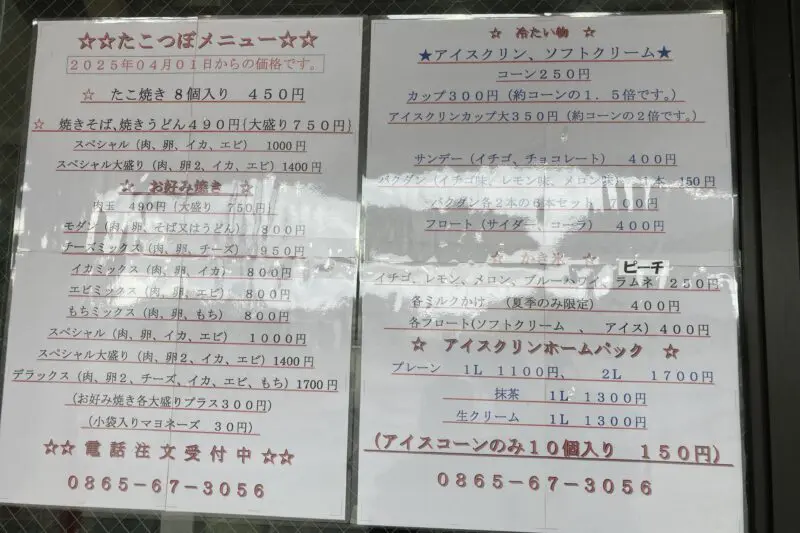 ☆☆たこつぼメニュー☆☆
2025年04月01日からの価格です。
☆ たこ焼き 8個入り 450円
☆ 焼きそば、焼きうどん490円{大盛り750円}
スペシャル(肉、卵、イカ、エビ) 1000円
スペシャル大盛り(肉、卵2、イカ、エビ) 1400円
☆ お好み焼き ☆
肉玉 490円{大盛り 750円}
モダン(肉、卵、そば又はうどん) 800円
チーズミックス(肉、卵、チーズ) 950円
イカミックス(肉、卵、イカ) 800円
エビミックス(肉、卵、エビ) 800円
もちミックス(肉、卵、もち) 800円
スペシャル(肉、卵、イカ、エビ) 1000円
スペシャル大盛り(肉、卵2、イカ、エビ)1400円
デラックス(肉、卵2、チーズ、イカ、エビ、もち)1700円
(お好み焼き各大盛りプラス300円)
(小袋入りマヨネーズ 30円)
☆☆ 電話注文受付中 ☆☆
0865-67-3056
☆ 冷たい物 ☆
★アイスクリン、ソフトクリーム★
コーン250円
カップ300円(約コーンの1.5倍です。)
アイスクリンカップ大350円(約コーンの2倍です。)
サンデー(イチゴ、チョコレート) 400円
バクダン(イチゴ味、レモン味、メロン味) 1本 150円
バクダン各2本の6本セット 700円
フロート(サイダー、コーラ) 400円
☆ かき氷 ☆
ピーチ
イチゴ、レモン、メロン、ブルーハワイ、ラムネ 250円
各ミルクかけ (夏季のみ限定) 400円
各フロート(ソフトクリーム 、 アイス)400円
☆ アイスクリンホームパック ☆
プレーン 1L 1100円、 2L 1700円
抹茶 1L 1300円
生クリーム 1L 1300円
(アイスコーンのみ10個入り 150円)
0865-67-3056